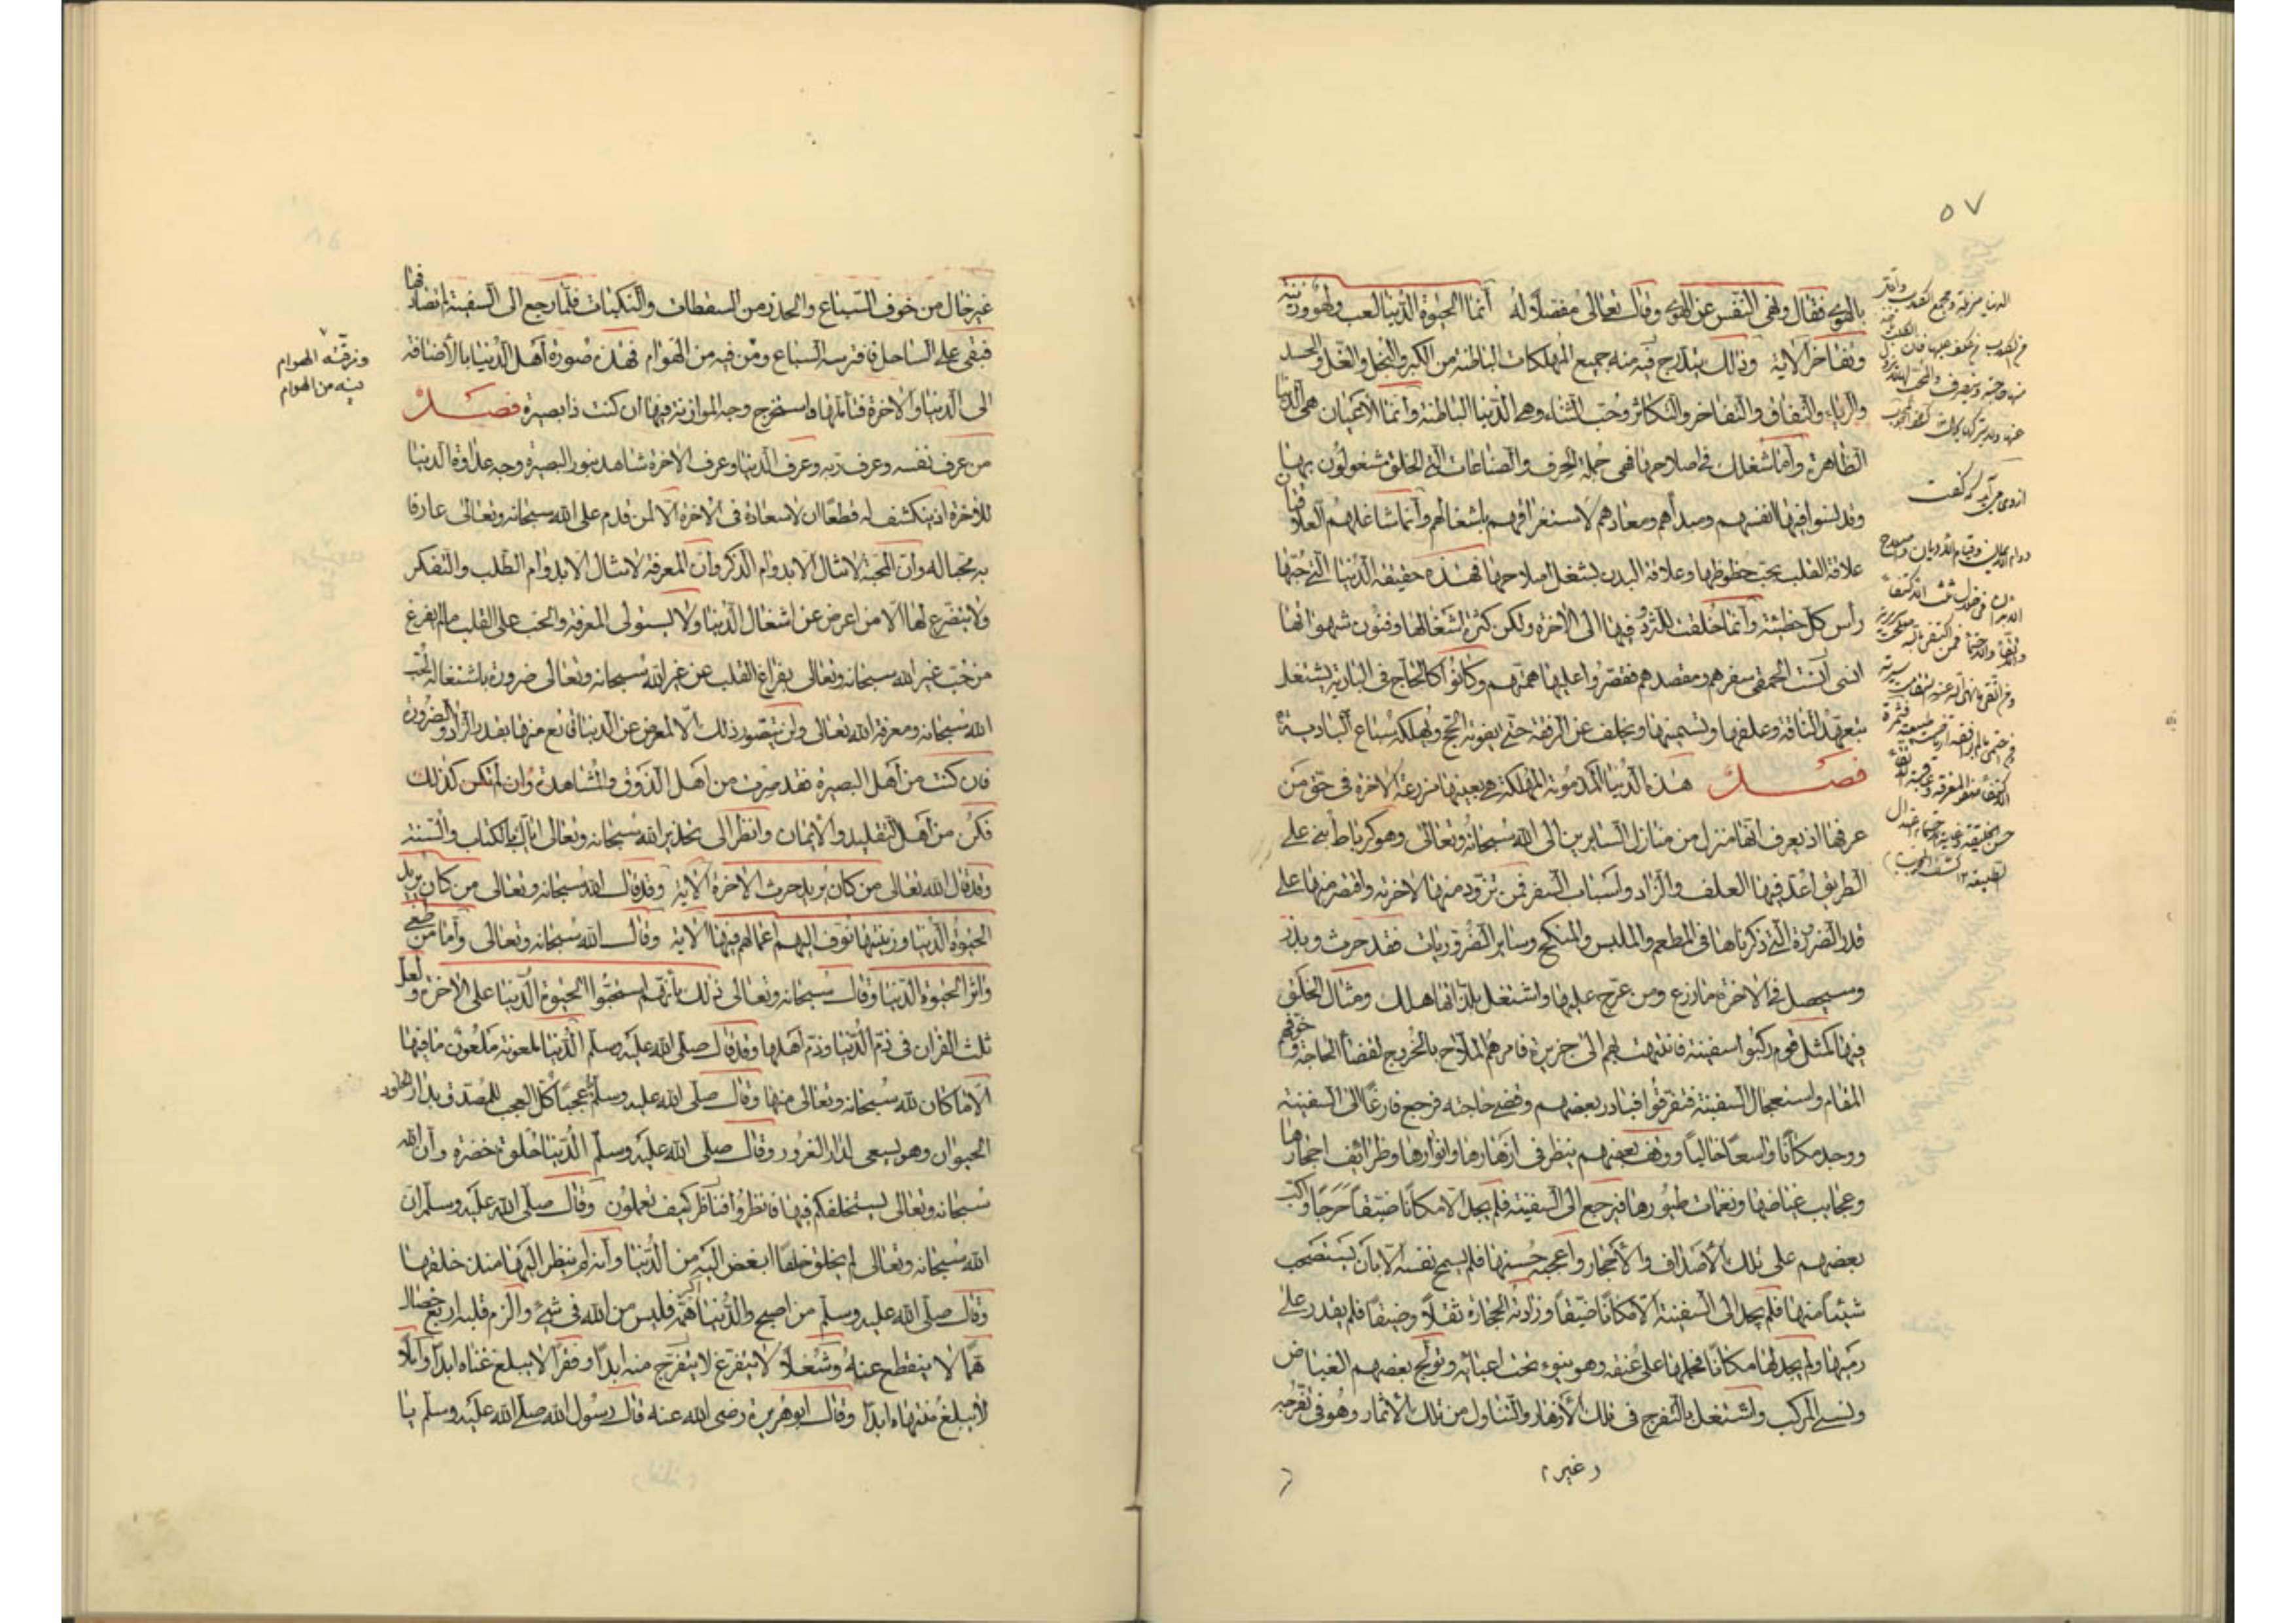 ٥٧
بالهوى فقال ونهى النفس عن الهوى وقال تعالى مفصلا له أنما الحيوة الدنيا لعب ولهو وزينة
وتفاخر الاية وذلك يندرج فيه منه جميع المهلكات الباطنة من الكبر والبخل والغل والحسد
والرياء والنفاق والتفاخر والتكاثر وحب الثناء وهى الدنيا الباطنة وأنما الأعيان هى الدنيا
الظاهرة وأما شغلك فى اصلاحها فهى جملة الحرف والصناعات التى الخلق مشغولون بها
وقد نسوا فيها انفسهم ومبدأهم ومعادهم لاستغراقهم باشغالهم وأنما شاغلهم العلاقتان
علاقة القلب بحب حظوظها وعلاقة البدن بشغل اصلاحها فهذه حقيقة الدنيا التى حبها
رأس كل خطيئة وأنما خلقت للتزود فيها الى الاخرة ولكن كثرة اشغالها وفنون شهواتها
انسى أنست الحمقى سفرهم ومقصدهم فقصروا عليها همتهم وكانوا كالحاج فى البادية يشتغل
بتعهد الناقة وعلفها وتسمينها ويخلف عن الرفقة حتى يفوته الحج ويهلكه سباع البادية
فصل هذه الدنيا المذمومة المهلكة هى بعينها مزرعة الاخرة فى حق من
عرفها اذ يعرف أنها منزل من منازل السايرين الى الله سبحانه وتعالى وهو كرباط بنى على
الطريق اعد فيها العلف والزاد واسباب السفر فمن تزود منها لاخرته واقتصر منها على
قدر الضرورة التى ذكرناها فى المطعم والملبس والمنكح وساير الضروريات فقد حرث وبذر
وسيحصل فى الاخرة ما زرع ومن عرج عليها واشتغل بلذاتها هلك ومثال الخلق
فيها كمثل قوم ركبوا سفينة فانتهت بهم الى جزيرة فامرهم الملاح بالخروج لقضاء الحاجة وخوفهم
المقام واستعجال السفينة فتفرقوا فبادر بعضهم وقضى حاجته فرجع فارغا الى السفينة
ووجد مكانا واسعا خاليا ووقف بعضهم ينظر فى ازهارها وانوارها وظرائف احجارها
وعجايب غياضها ونغمات طيورها فيرجع الى السفينة فلم يجد الا مكانا ضيقا حرجا واكب
بعضهم على تلك الأصداف والأحجار واعجبه حسنها فلم يسمح نفسه الا بان يستصحب
شيئا منها فلم يجد الى السفينة الا مكانا ضيقا وزادته الحجارة ثقلا وضيقا فلم يقدر على
رميها ولم يجد لها مكانا فحملها على عنقه وهو ينوء تحت اعبائه وتولج بعضهم الغياض
ونسى المركب واشتغل بالتفرج فى تلك الأزهار والتناول من تلك الأثمار وهو فى تفرجه
(غير)
غير خال من خوف السباع والحذر من السقطات والنكبات فلما رجع الى السفينة لم يصادفها
فبقى على الساحل فافترسه السباع ومن فيه من الهوام فهذه صورة أهل الدنيا بالأضافة
الى الدنيا والأخرة فتأملها واستخرج وجه الموازنة فيها ان كنت ذا بصيرة فصل
من عرف نفسه وعرف ربه وعرف الدنيا وعرف الاخرة شاهد بنور البصيرة وجه عداوة الدنيا
للأخرة اذ ينكشف له قطعا ان لا سعادة فى الأخرة الا لمن قدم على الله سبحانه وتعالى عارفا
به محبا له وأن المحبة لا تنال الا بدوام الذكر وأن المعرفة لا تنال الا بدوام الطلب والتفكر
ولا يتفرغ لها الا من اعرض عن اشغال الدنيا ولا يستولى المعرفة والحب على القلب مالم يفرغ
من حب غير الله سبحانه وتعالى بفراغ القلب عن غير الله سبحانه وتعالى ضرورة باشتغاله بحب
الله سبحانه ومعرفة الله تعالى ولن يتصور ذلك الا لمعرض عن الدنيا قانع منها بقدر الزاد والضرورة
فان كنت من أهل البصيرة فقد صرت من أهل الذوق والمشاهدة وان لم تكن كذلك
فكن من أهل التقليد والأيمان وانظر الى تحذير الله سبحانه وتعالى اياك بالكتاب والسنة
وقد قال الله تعالى من كان يريد حرث الاخرة الاية وقد قال الله سبحانه وتعالى من كان يريد
الحيوة الدنيا وزينتها نوف اليهم اعمالهم فيها الاية وقال الله سبحانه وتعالى وأما من طغى
واثر الحيوة الدنيا وقال سبحانه وتعالى ذلك بأنهم استحبوا الحيوة الدنيا على الاخرة ولعل
ثلث القران فى ذم الدنيا وذم أهلها وقد قال صلى الله عليه وسلم الدنيا ملعونة ملعون ما فيها
الا ما كان لله سبحانه وتعالى منها وقال صلى الله عليه وسلم عجبا كل العجب للمصدق بدار الخلود
الحيوان وهو يسعى لدار الغرور وقال صلى الله عليه وسلم الدنيا حلوة خضرة وأن الله
سبحانه وتعالى يستخلفكم فيها فانظروا فناظر كيف تعملون وقال صلى الله عليه وسلم ان
الله سبحانه وتعالى لم يخلق خلقا ابغض اليه من الدنيا وأنه لم ينظر اليها منذ خلقها
وقال صلى الله عليه وسلم من اصبح والدنيا أكبر همه فليس من الله فى شئ والزم قلبه اربع خصال
هما لا ينقطع عنه وشغلا لا يتفرغ لا يتفرج منه ابدا وفقرا لا يبلغ غناه ابدا وأملا
لا يبلغ منتهاه ابدا وقال ابو هريرة رضى الله عنه قال رسول الله صلى الله عليه وسلم يا
ونزقته الهوام
بيه من الهوام